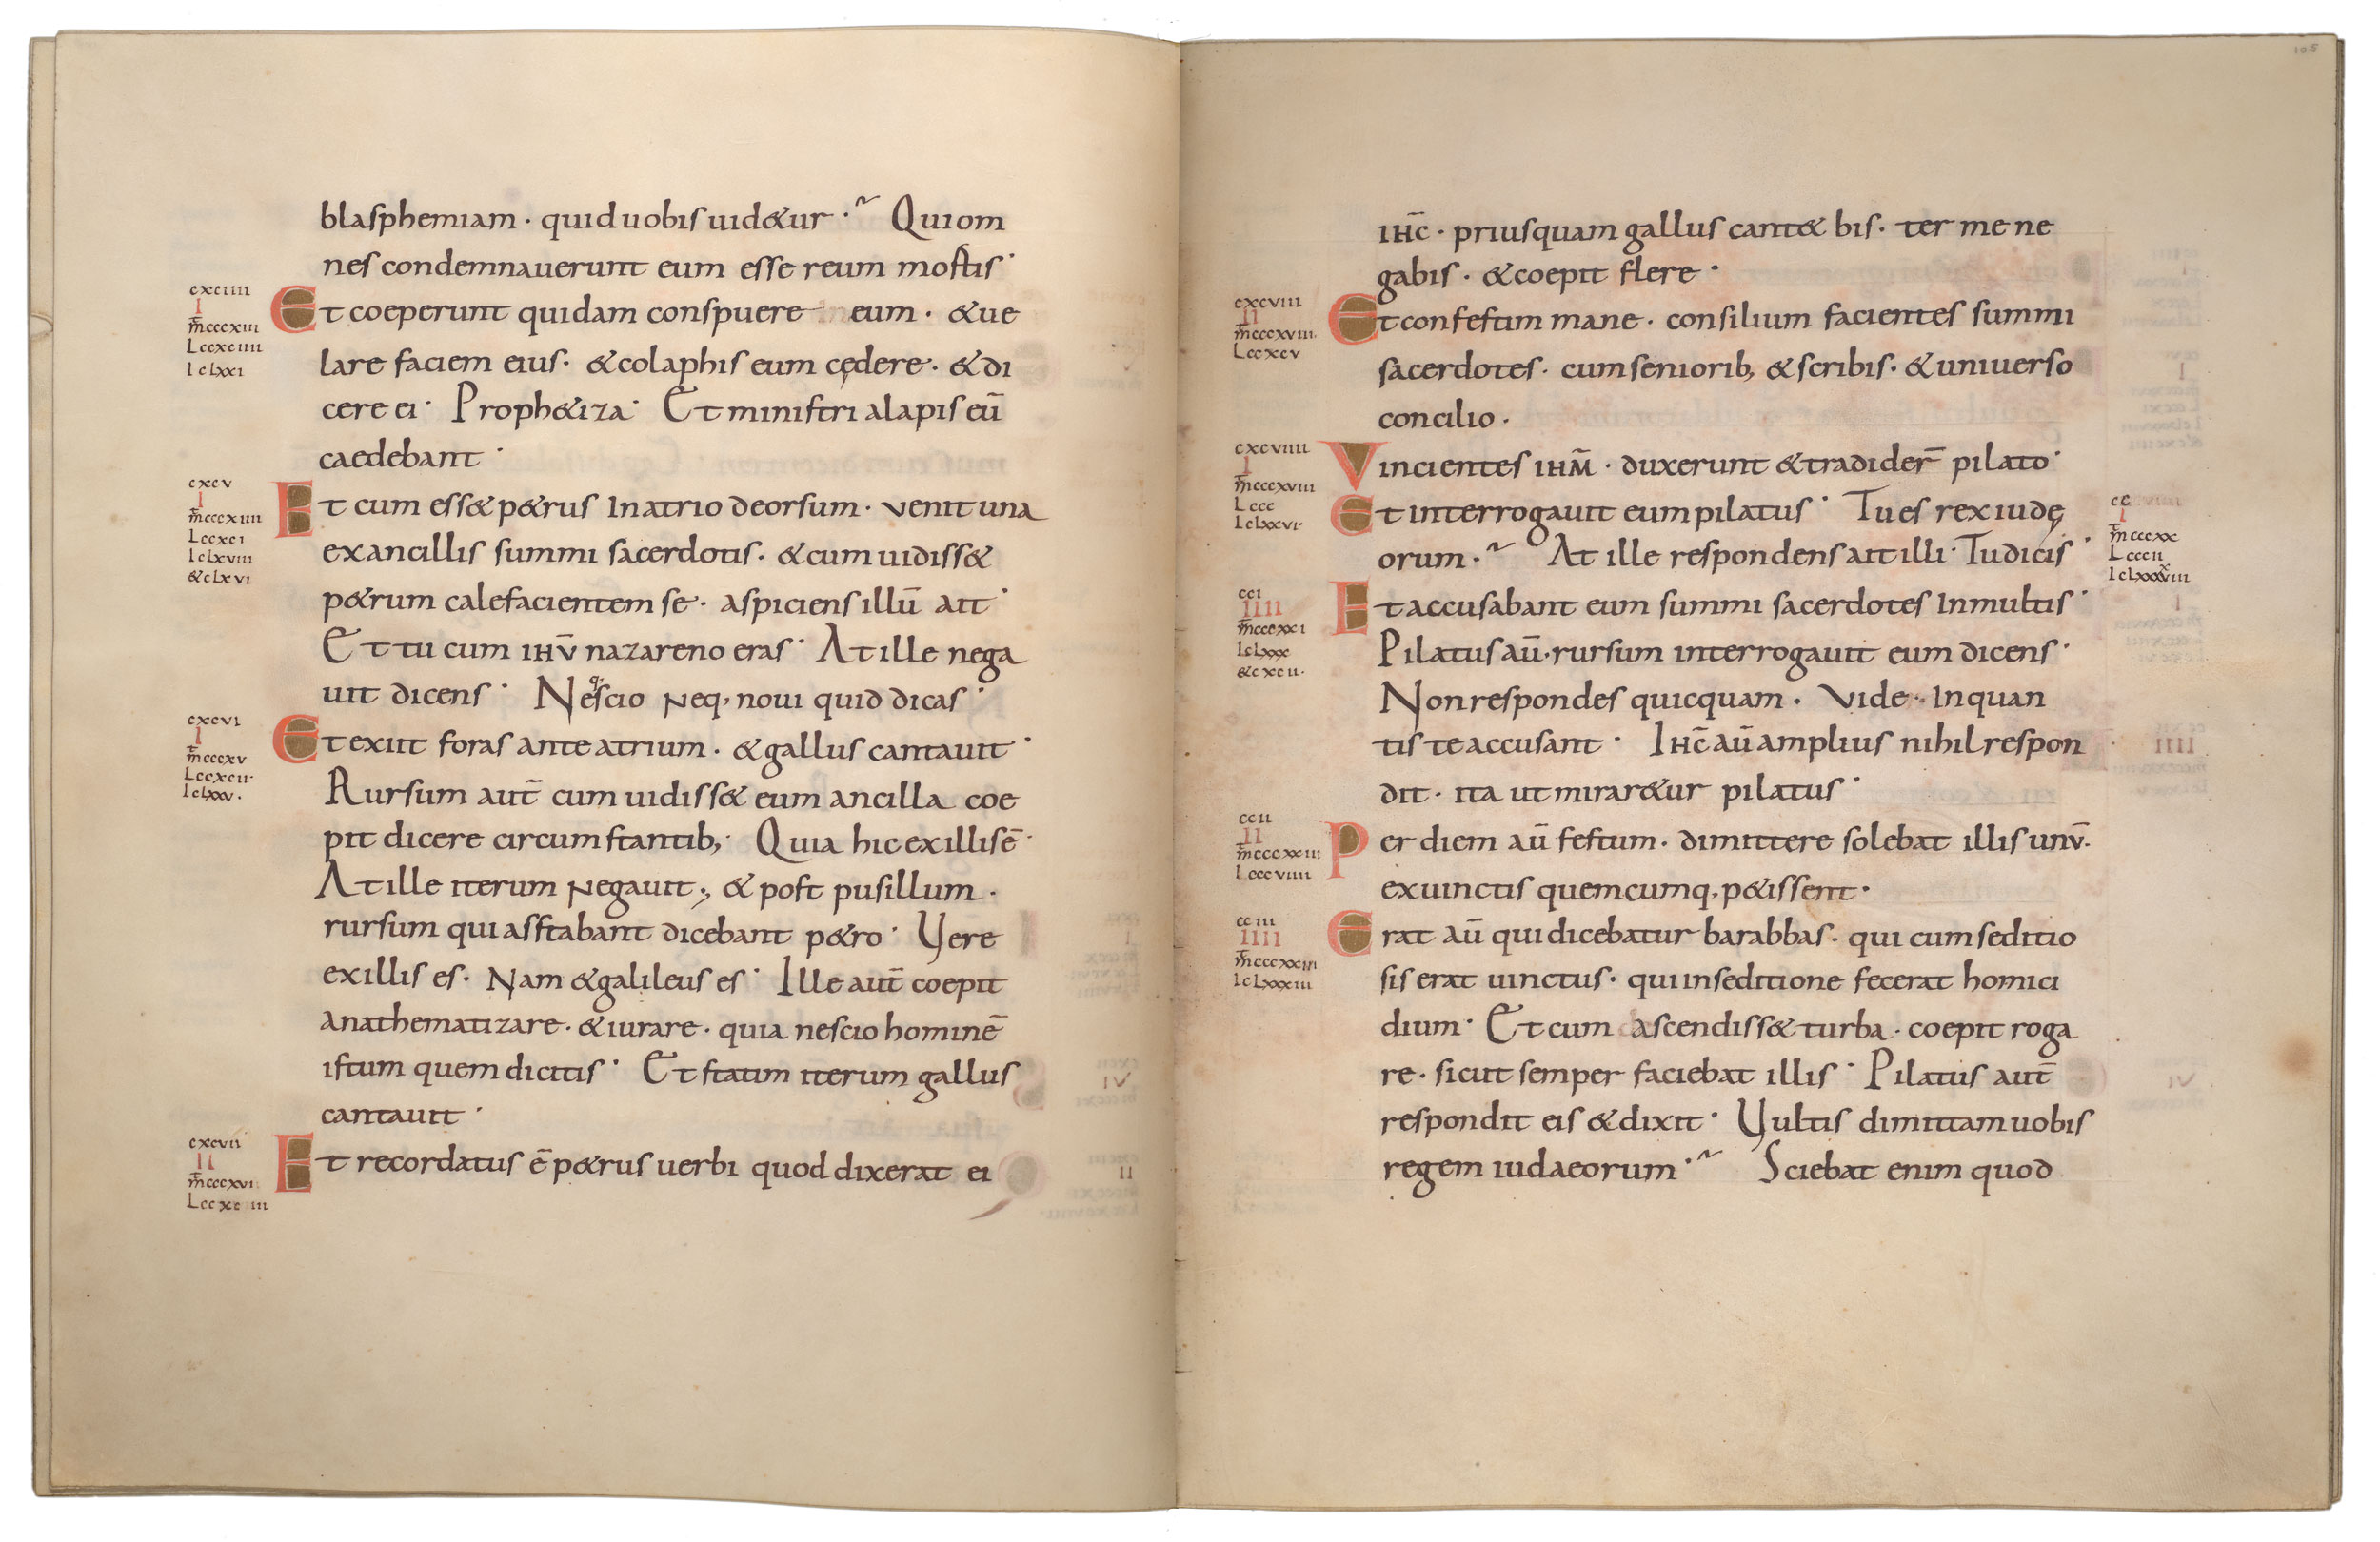 blasphemiam · quid uobis uid&ur ·~ Qui om
nes condemnauerunt eum esse reum mortis ·
cxciiii
I
m̄cccxiii
Lccxciiii
Ioclxxi
Et coeperunt quidam conspuere eum · & ue
lare faciem eius · & colaphis eum cędere · & di
cere ei · Proph&iza · Et ministri alapis eū
caedebant ·
cxcv
I
m̄cccxiiii
Lccxci
Ioclxviii
& clxvi
Et cum ess& p&rus In atrio deorsum · venit una
ex ancillis summi sacerdotis · & cum uidiss&
p&rum calefacientem se · aspiciens illū ait ·
Et tu cum ιHv̄ nazareno eras · At ille nega
uit dicens · Nescio neq; noui quid dicas ·
cxcvi
I
m̄cccxv
Lccxcii·
Ioclxxv·
Et exiit foras ante atrium · & gallus cantauit ·
Rursum aut̄ cum uidiss& eum ancilla coe
pit dicere circumstantib; · Quia hic ex illis ē ·
At ille iterum negauit ; & post pusillum ·
rursum qui asstabant dicebant p&ro · Vere
ex illis es · Nam & galileus es · Ille aut̄ coepit
anathematizare · & iurare · quia nescio hominē
istum quem dicitis · Et statim iterum gallus
cantauit ·
cxcvii
II
m̄cccxvi
Et recordatus ē p&rus uerbi quod dixerat ei
105
ιHc̄ · priusquam gallus cant& bis · ter me ne
gabis · & coepit flere ·
cxcviii
II
m̄cccxviii·
Lccxcv
Et confestim mane · consilium facientes summi
sacerdotes · cum seniorib; & scribis · & uniuerso
concilio ·
cxcviiii
I
m̄cccxviiii
Lccc
Ioclxxvi·
Vincientes ιHM̄ · duxerunt & tradider̄ pilato ·
Et interrogauit eum pilatus · Tu es rex iudę
cc
I
m̄cccxx
Lcccii
orum ·~ At ille respondens ait illi · Tu dicis ·
cci
IIII
m̄cccxxi
Ioclxxx
& cxcii·
Et accusabant eum summi sacerdotes In multis ·
Pilatus aū · rursum interrogauit eum dicens ·
Non respondes quicquam · Vide · In quan
tis te accusant · IHc̄ aū amplius nihil respon
dit · ita ut mirar&ur pilatus ·
ccii
II
m̄cccxxii
Lcccviiii
Per diem aū festum · dimittere solebat illis unv̄ ·
ex uinctis quemcumq; p&issent ·
cciii
IIII
m̄cccxxiii
Ioclxxxiii
Erat aū qui dicebatur barabbas · qui cum seditio
sis erat uinctus · qui in seditione fecerat homici
dium · Et cum ascendiss& turba · coepit roga
re · sicut semper faciebat illis · Pilatus aut̄
respondit eis & dixit · Vultis dimittam uobis
regem iudaeorum ·~ Sciebat enim quod